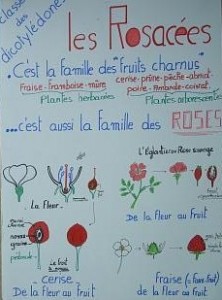 classe des
dicotylédones
les Rosacées
C'est la famille des "fruits charnus"
Fraise-framboise-mûre
cerise-prune-pêche-abricot
poire-Amande-
Plantes herbacées
Plantes arborescentes
...c'est aussi la Famille des ROSES
L'Eglantier ou Rosier sauvage
La fleur
De la fleur au Fruit
Le fruit
cerise
De la Fleur au Fruit
Fraise
de la fleur au Fruit